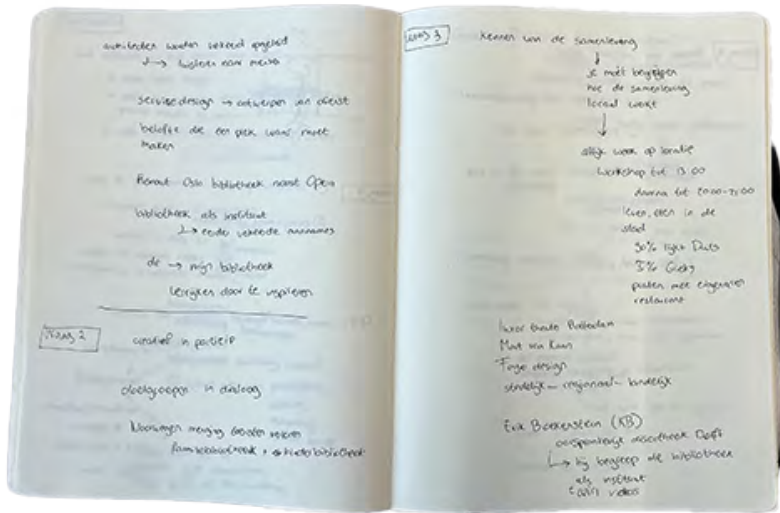 worden verkeerd opgeleid
↳ luisteren naar mensen
service design → ontwerpen van dienst
belofte die een plek waar moet
maken
Oslo bibliotheek naast Opera
bibliotheek als instituut
↳ eerder verkeerde aannames
de → mijn bibliotheek
verrijken door te inspireren
vraag 2
creatief in participatie
doelgroepen in dialoog
Noorwegen
+ kinderbibliotheek
vraag 3
kennen van de samenleving
↓
je moet begrijpen
hoe de samenleving
locaal werkt
↓
altijd week op locatie
Workshop tot 13:00
daarna tot 20:00-21:00
leven, eten in de
stad
90% lijkt Duits
5%
praten met eigenaren
restaurant
Rotterdam
design
stedelijk – regionaal – landelijk
Erik Boekenstein (KB)
oorspronkelijk discotheek Delft
↳ hij begreep de bibliotheek
als instituut
videos